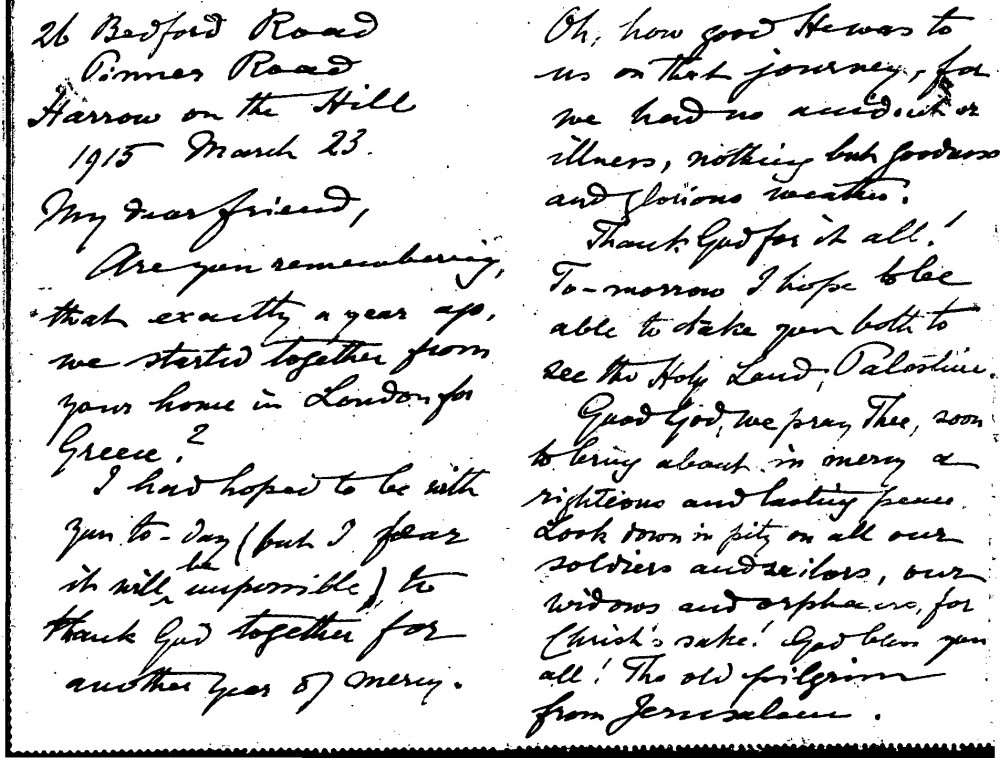 26 Bedford Road
Pinner Road
Harrow on the Hill
1915 March 23.
My dear friend,
Are you remembering,
that exactly a year ago,
we started together from
your home in London for
Greece?
I had hoped to be with
you to-day (but I fear
it will be impossible) to
thank God together for
another year of mercy.
Oh, how good He was to
us on that journey, for
we had no accident or
illness, nothing but goodness
and glorious weather.
Thank God for it all!
To-morrow I hope to be
able to take you both to
see the Holy Land, Palestine.
Good God, we pray Thee, soon
to bring about in mercy a
righteous and lasting peace.
Look down in pity on all our
soldiers and sailors, our
widows and orphans, for
Christ's sake! God bless you
all! The old pilgrim
from Jerusalem.